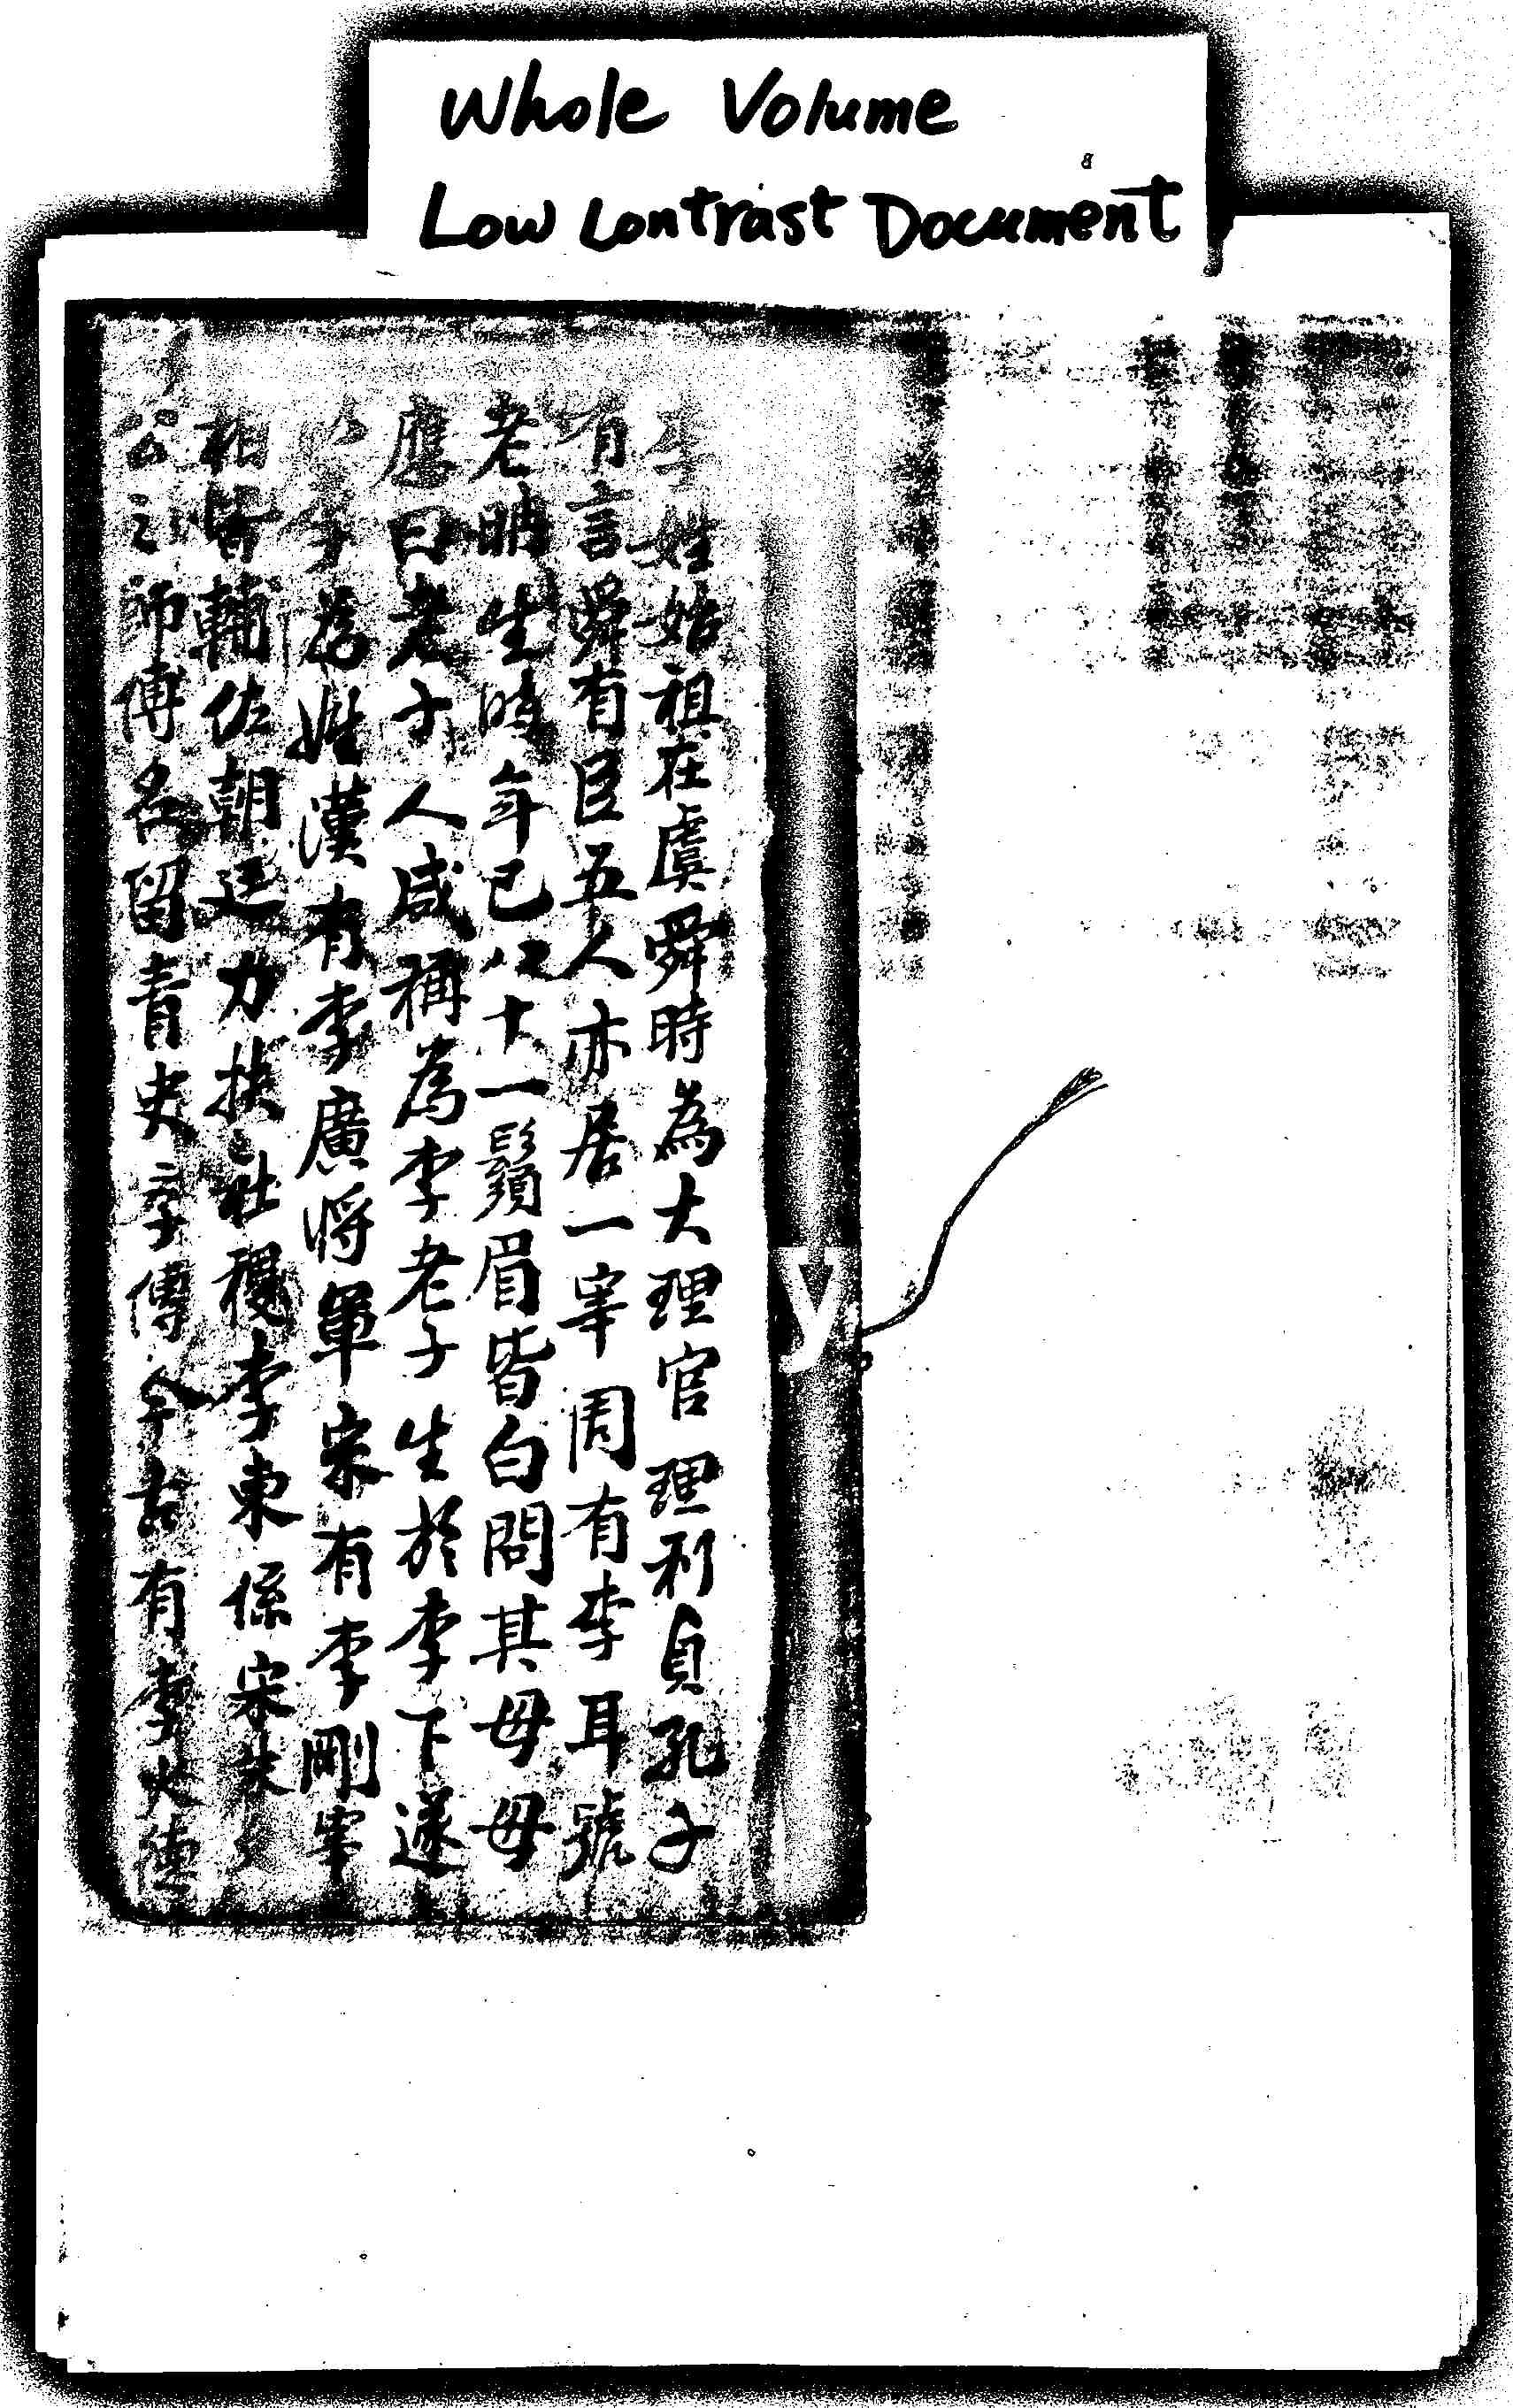 Whole Volume
Low Contrast Document
李姓始祖在虞舜時為大理官理利貞孔子
有言舜有臣五人亦居一宰周有李耳號
老聃生時年已八十一鬚眉皆白問其母母
應曰老子人咸稱為李老子生於李下遂
以李為姓漢有李廣將軍宋有李剛宰
相皆輔佐朝廷力扶社稷李東係宋朱
公之師傅名留青史李傳今古有李火德